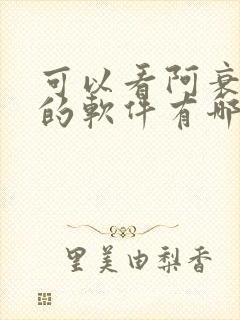 可以看阿衰
的軟件有哪
里美由梨香